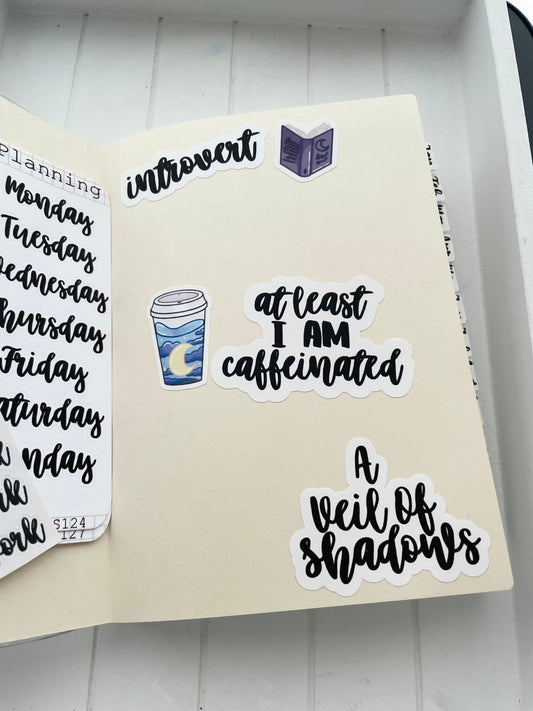 Planning
Monday
Tuesday
ednesday
hursday
Friday
aturday
nday
ork
S124
127
introvert
at least
I AM
caffeinated
A
veil of
shadows